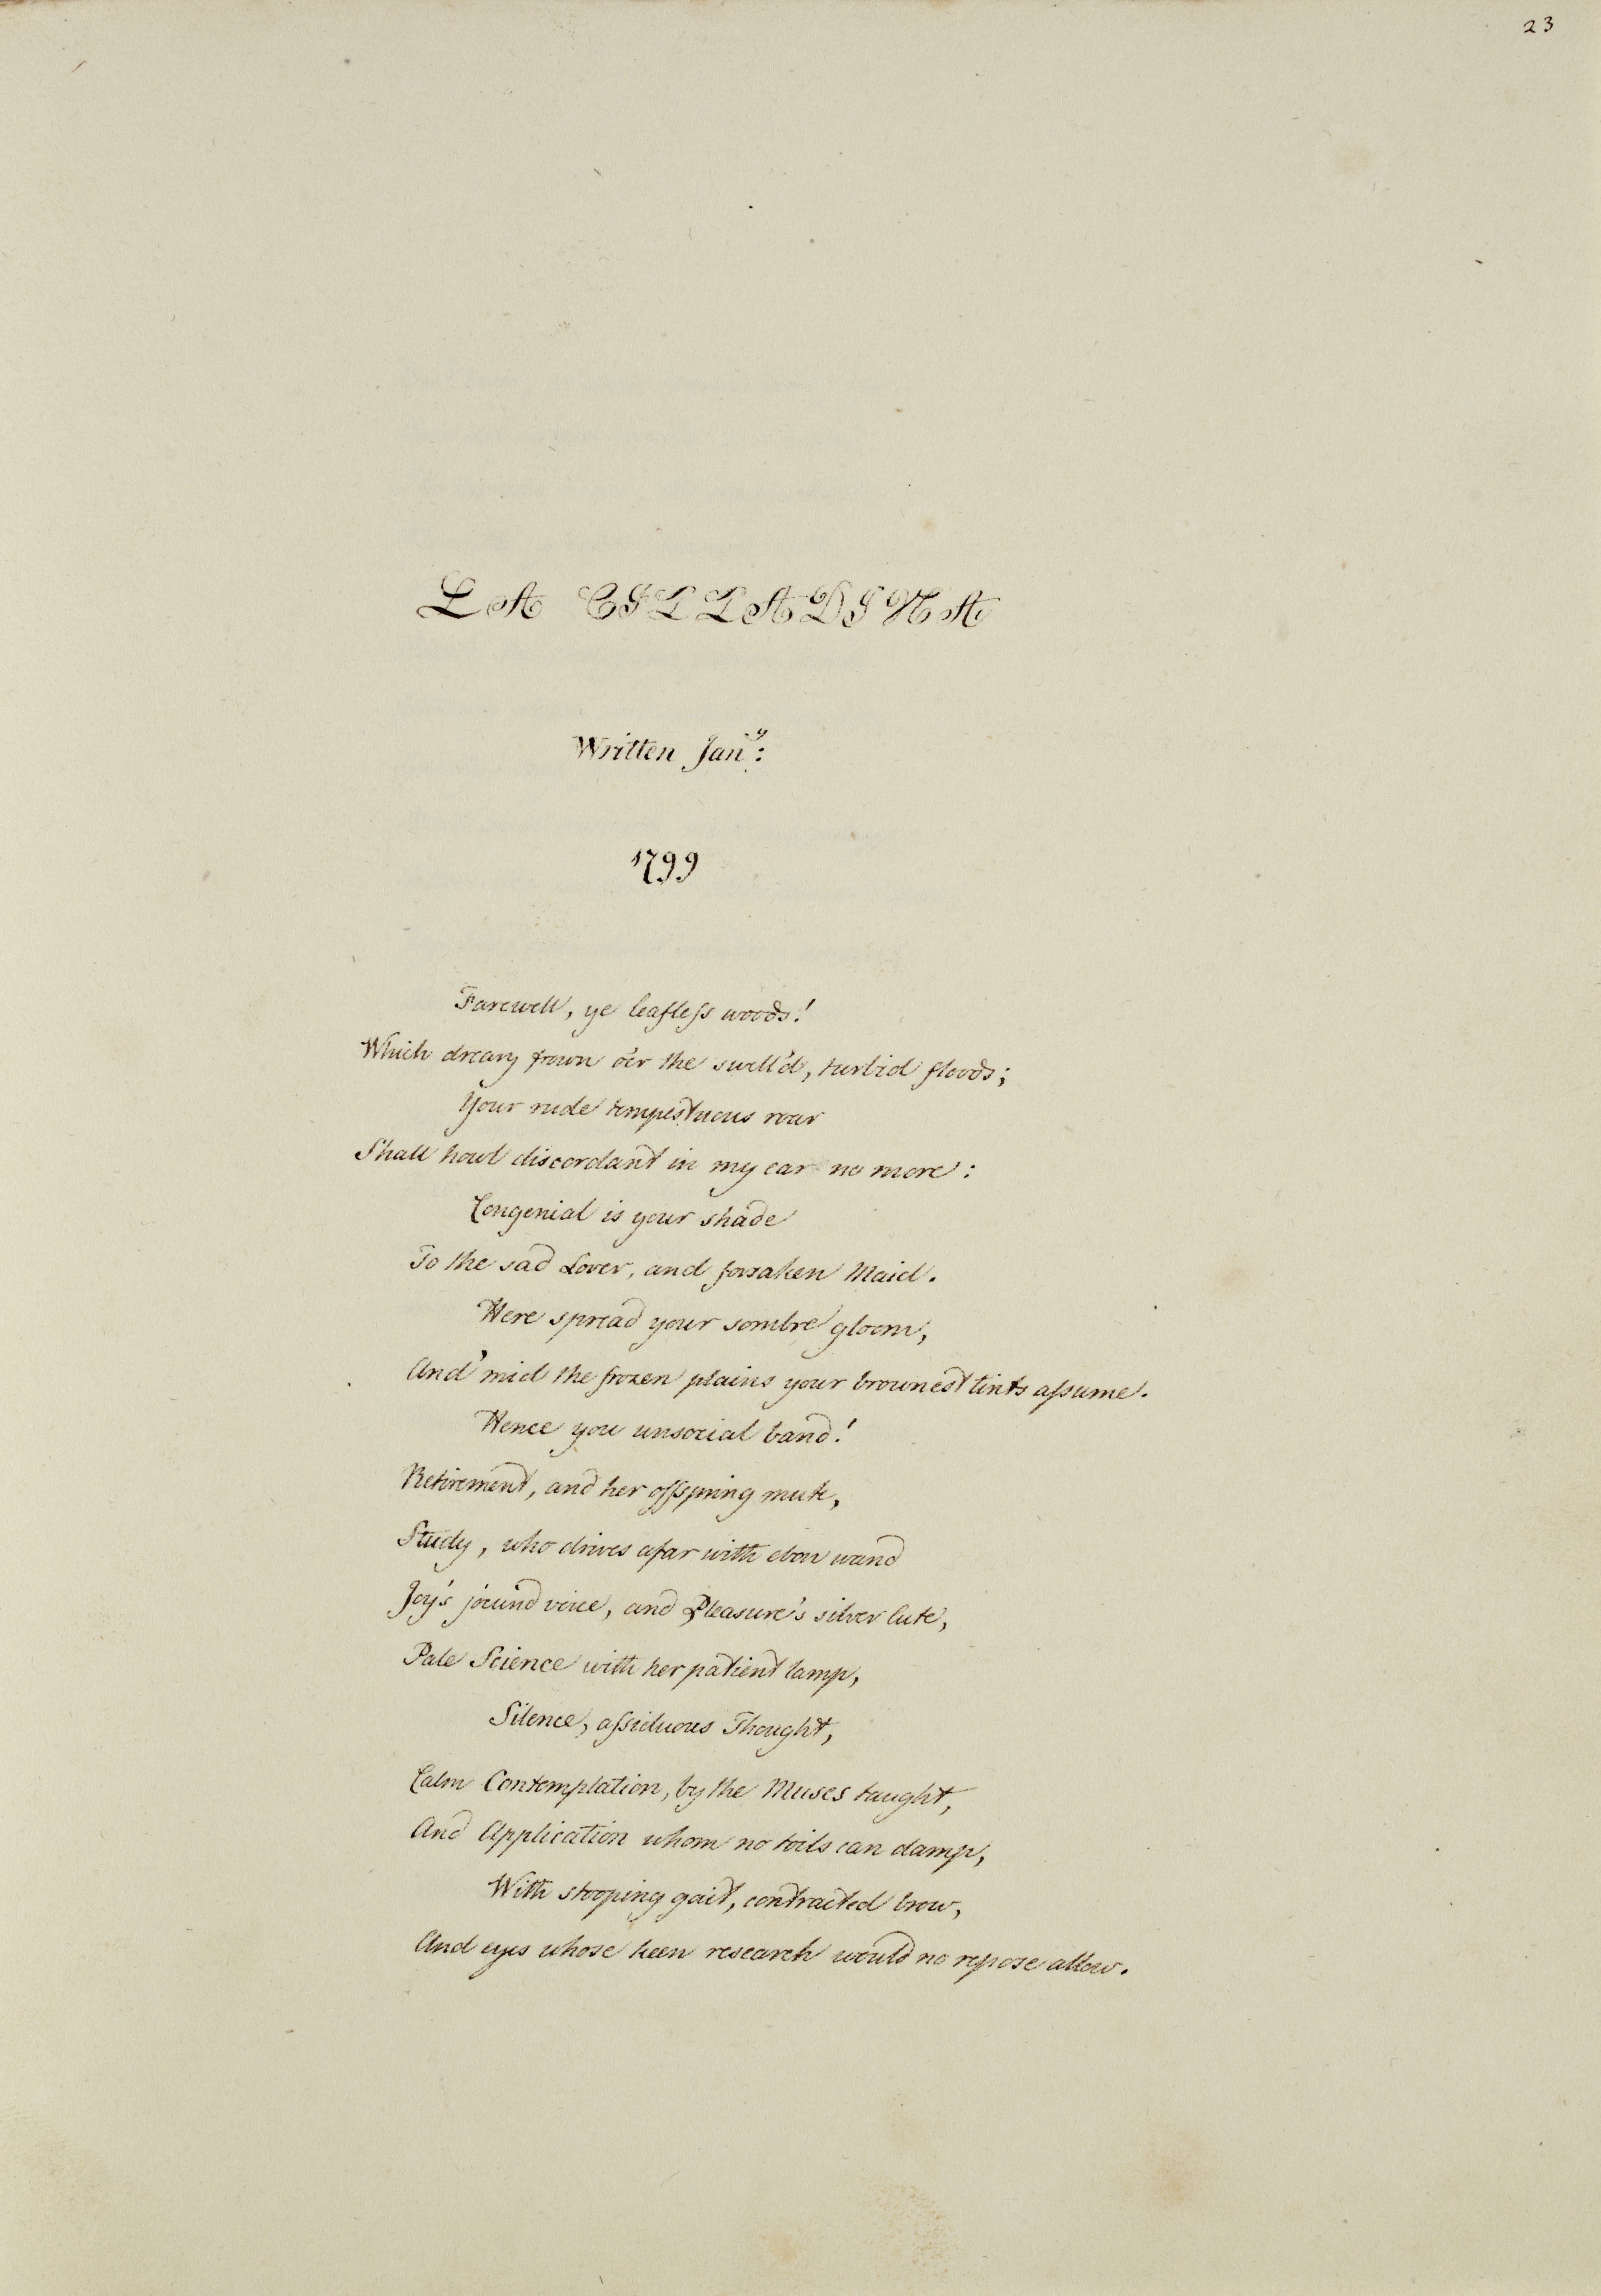 23
LA CILLADINA
Written Janʸ:
1799
Farewell, ye leafless woods!
Which dreary frown o'er the swell'd, turbid floods;
Your rude tempestuous roar
Shall howl discordant in my ear no more:
Congenial is your shade
To the sad Lover, and forsaken Maid.
Here spread your sombre gloom,
And 'mid the frozen plains your brownest tints assume.
Hence you unsocial band!
Retirement, and her offspring mute,
Study, who drives afar with ebon wand
Joy's jocund voice, and Pleasure's silver lute,
Pale Science with her patient lamp,
Silence, assiduous Thought,
Calm Contemplation, by the Muses taught,
And Application whom no toils can damp,
With stooping gait, contracted brow,
And eyes whose keen research would no repose allow.